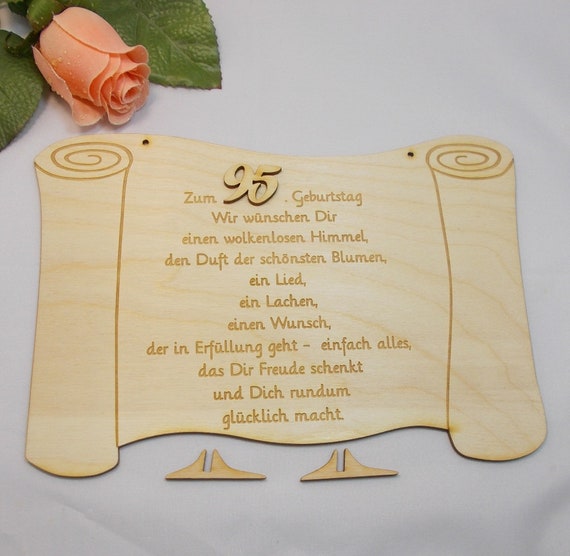 Zum 95. Geburtstag
Wir wünschen Dir
einen wolkenlosen Himmel,
den Duft der schönsten Blumen,
ein Lied,
ein Lachen,
einen Wunsch,
der in Erfüllung geht - einfach alles,
das Dir Freude schenkt
und Dich rundum
glücklich macht.